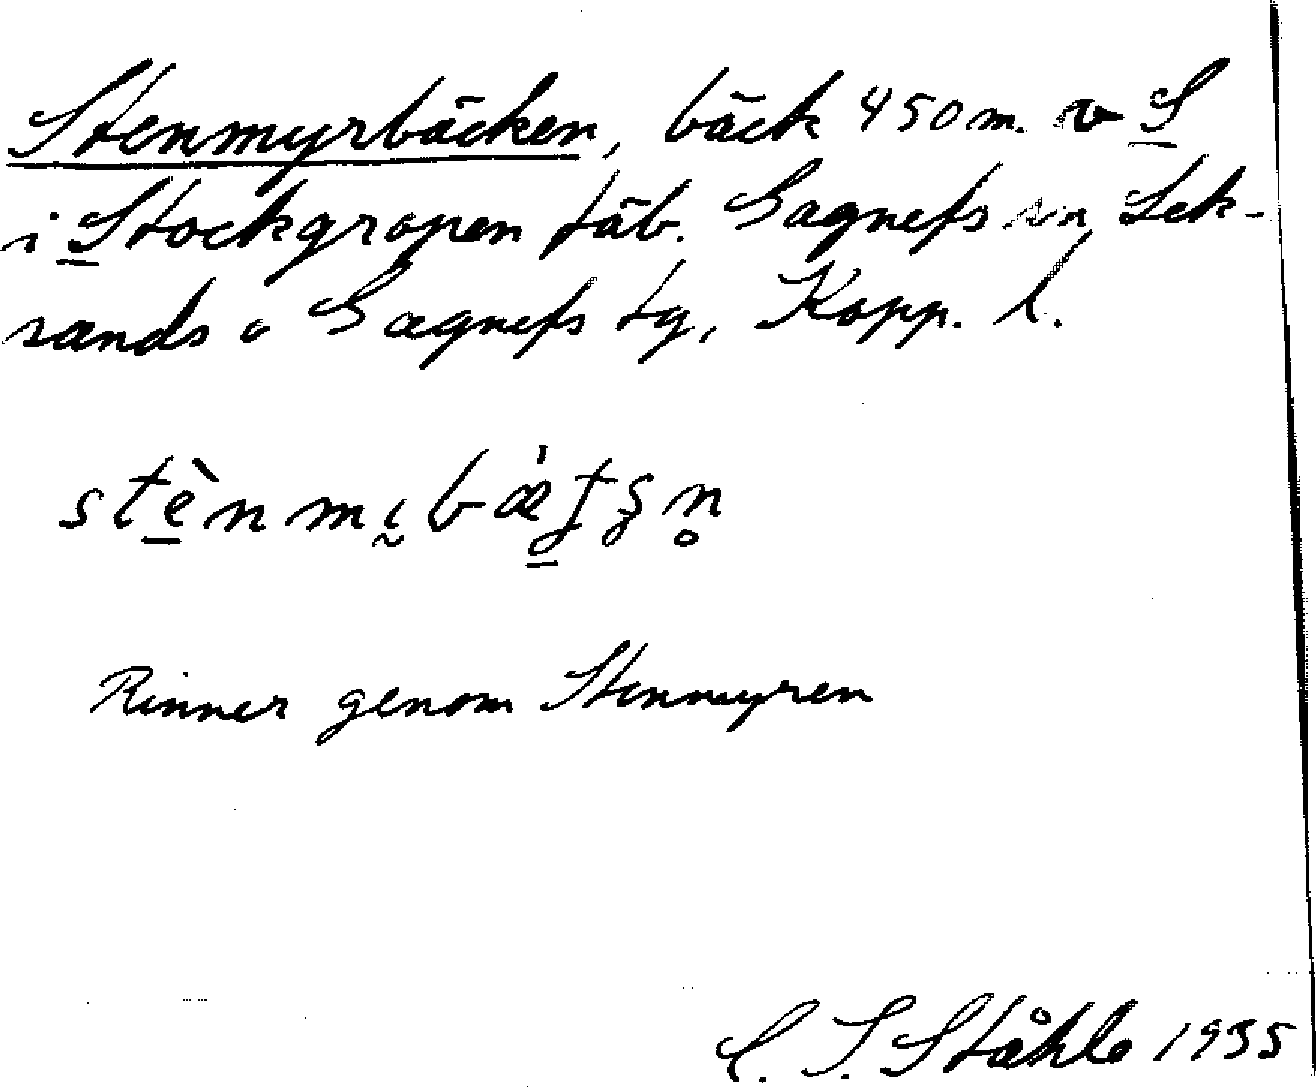 Stenmyrbäcken, bäck 450 m. v S
i Stockgropen fäb. Gagnefs sn, Lek-
sands o Gagnefs tg, Kopp. l.
Rinner genom Stenmyren
C. I. Ståhle 1935